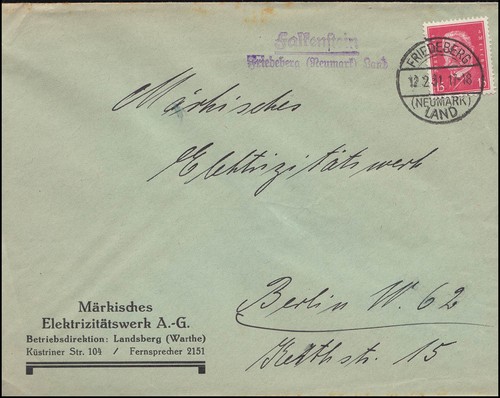 Falkenstein
Friedeberg (Neumark) Land
FRIEDEBERG
12.2.31.17-18
(NEUMARK)
LAND
15 15
Märkisches
Elektrizitätswerk
Berlin W. 62
Keithstr. 15
Märkisches
Elektrizitätswerk A.-G.
Betriebsdirektion: Landsberg (Warthe)
Küstriner Str. 104 / Fernsprecher 2151